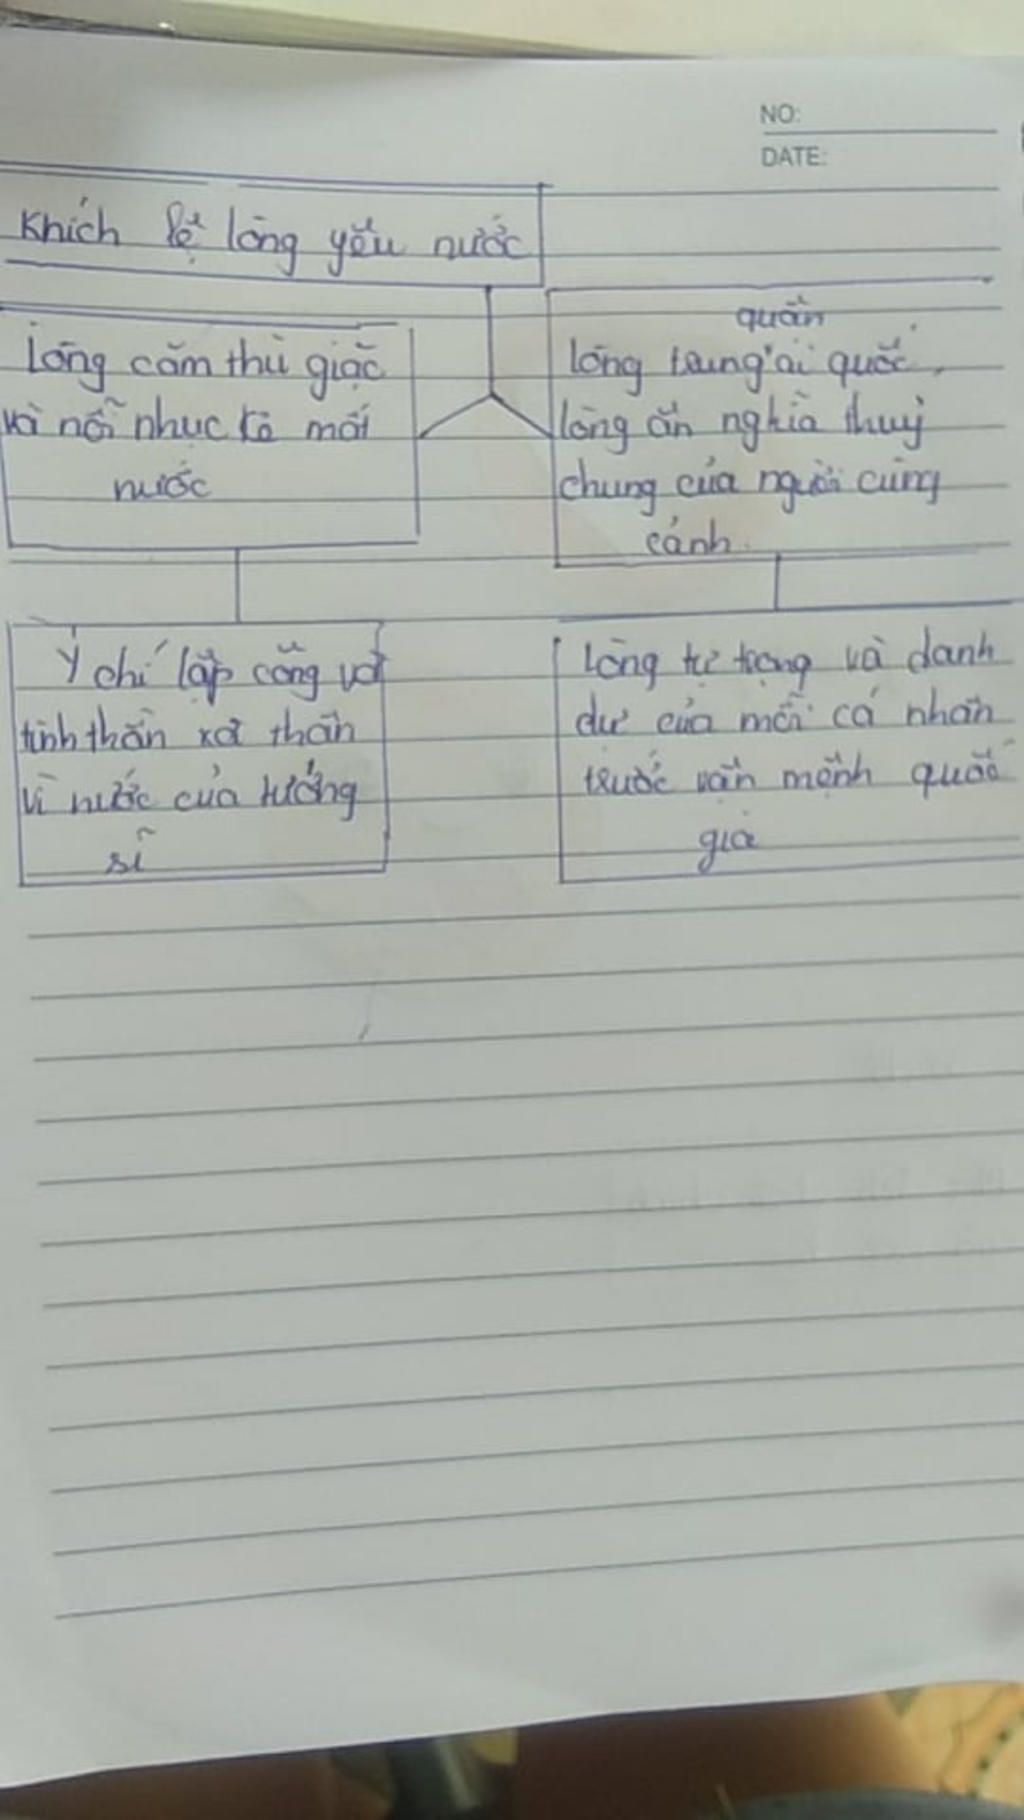 NO:
DATE:
Khích lệ lòng yêu nước
Lòng căm thù giặc
và nỗi nhục kẻ mất
nước
quân
lòng trung ái quốc,
lòng ân nghĩa thuỷ
chung của người cùng
cảnh.
Ý chí lập công và
tinh thần xả thân
vì nước của tướng
sĩ
Lòng tự trọng và danh
dự của mỗi cá nhân
trước vận mệnh quốc
gia